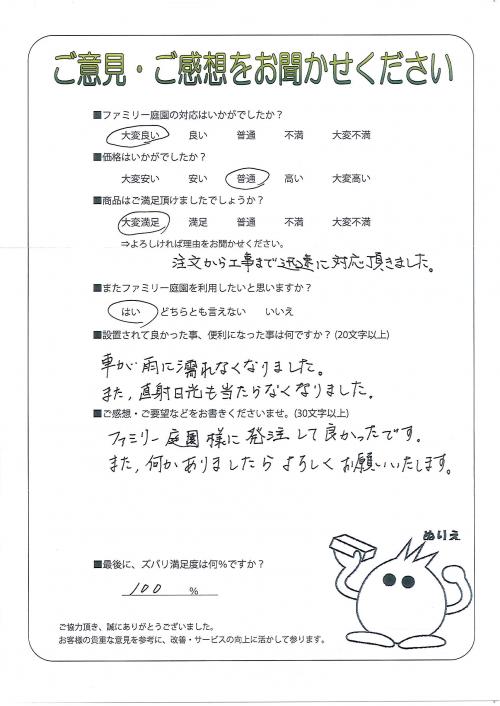 ご意見・ご感想をお聞かせください
■ファミリー庭園の対応はいかがでしたか？
大変良い 良い 普通 不満 大変不満
■価格はいかがでしたか？
大変安い 安い 普通 高い 大変高い
■商品はご満足頂けましたでしょうか？
大変満足 満足 普通 不満 大変不満
⇒よろしければ理由をお聞かせください。
注文から工事まで迅速に対応頂きました。
■またファミリー庭園を利用したいと思いますか？
はい どちらとも言えない いいえ
■設置されて良かった事、便利になった事は何ですか？(20文字以上)
車が雨に濡れなくなりました。
また，直射日光も当たらなくなりました。
■ご感想・ご要望などをお書きくださいませ。(30文字以上)
ファミリー庭園様に発注して良かったです。
また，何かありましたらよろしくお願いいたします。
ぬりえ
■最後に、ズバリ満足度は何％ですか？
100 ％
ご協力頂き、誠にありがとうございました。
お客様の貴重な意見を参考に、改善・サービスの向上に活かして参ります。